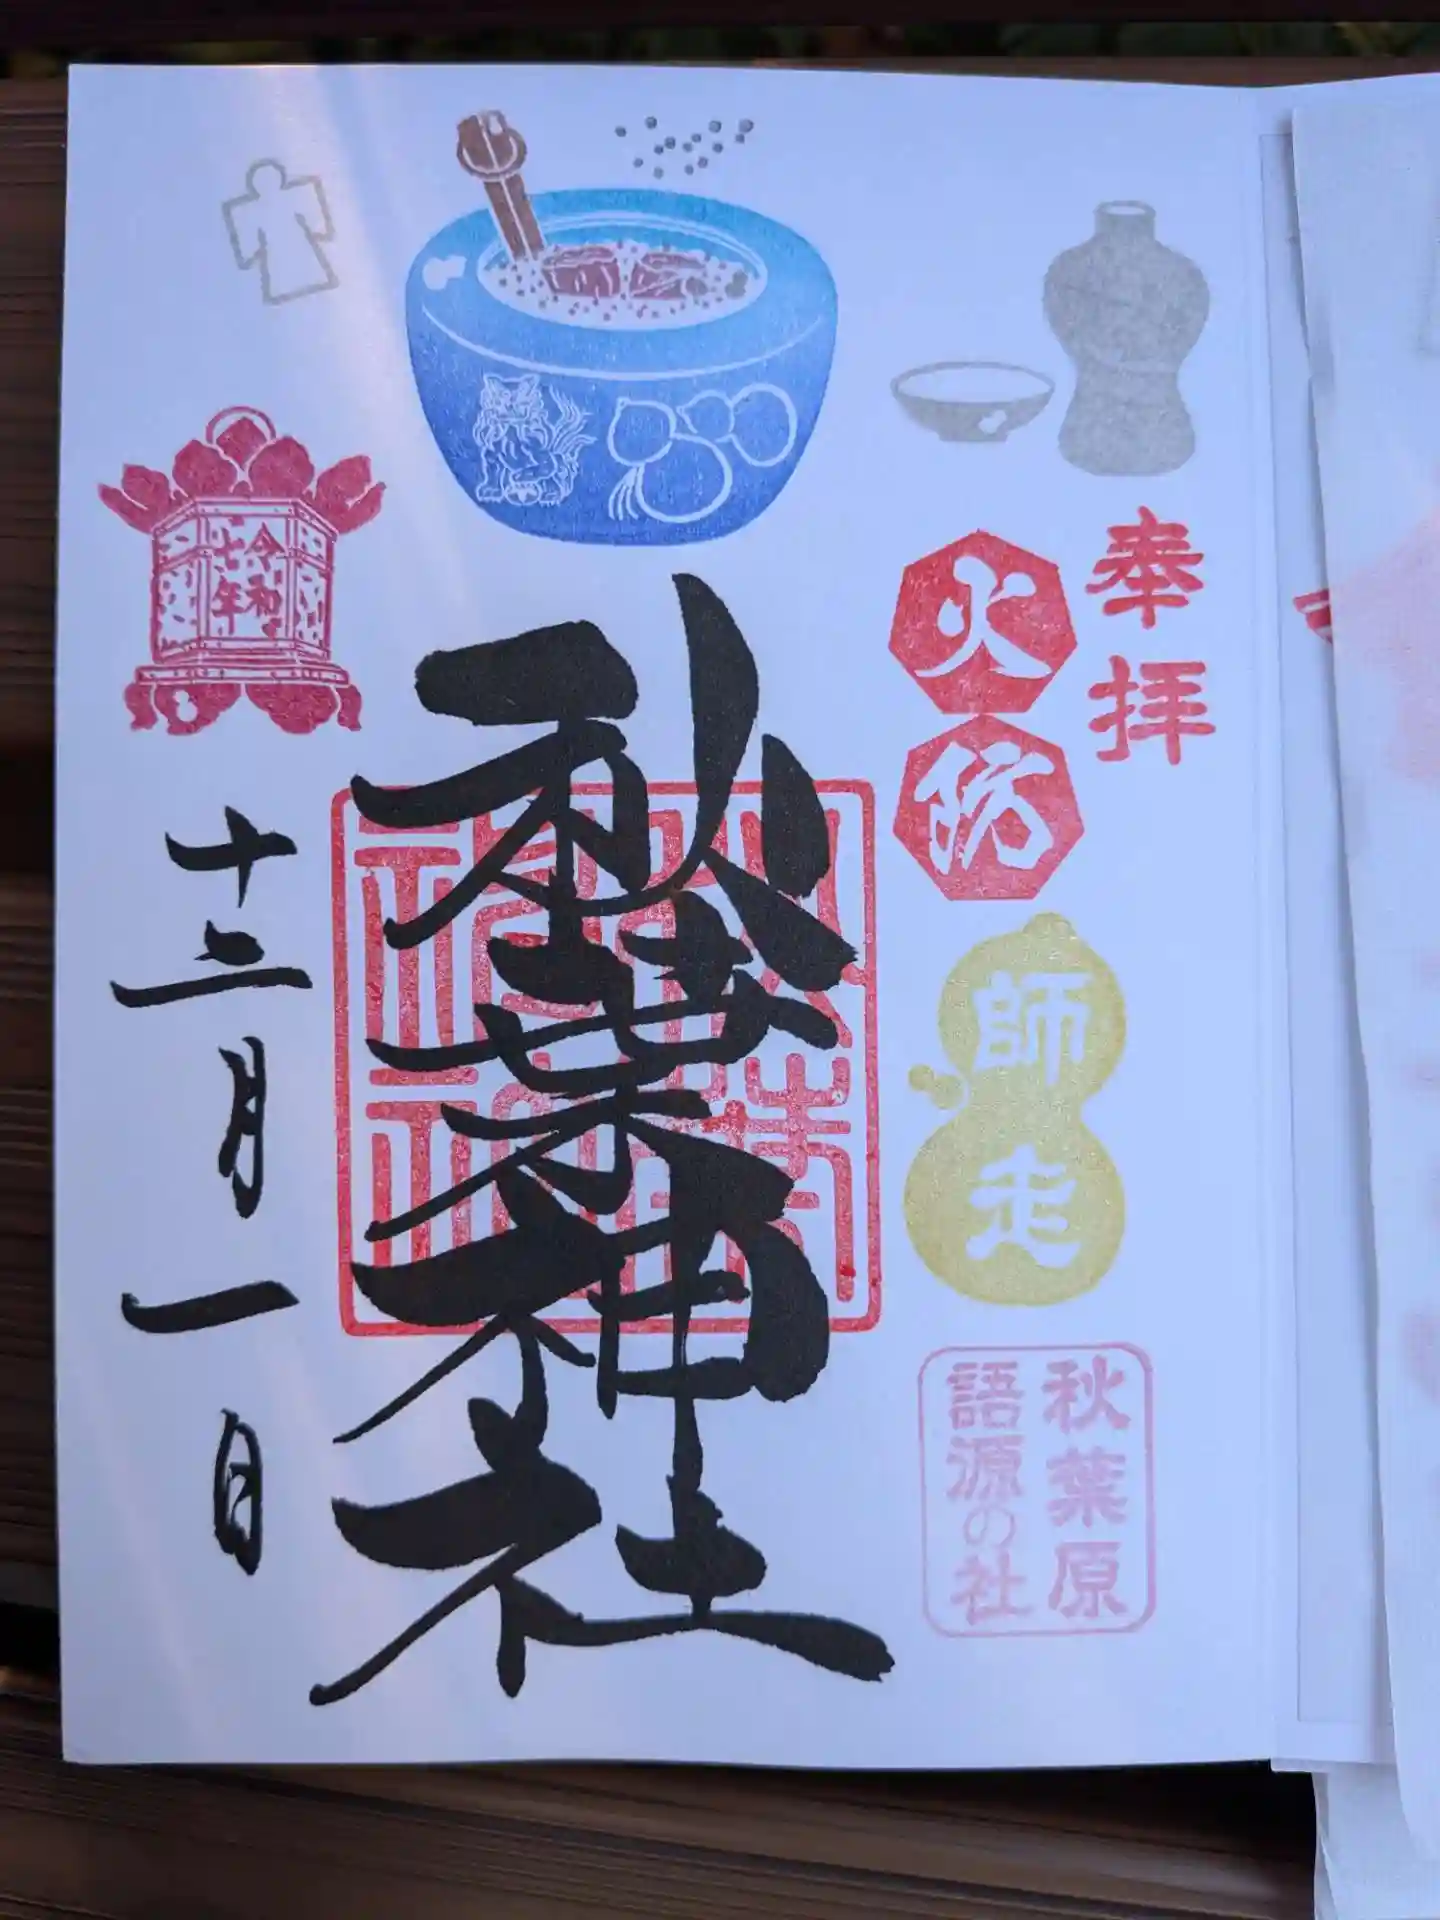 奉拝
火防
師走
秋葉原
語源の社
秋葉神社
令和
七年
十二月一日